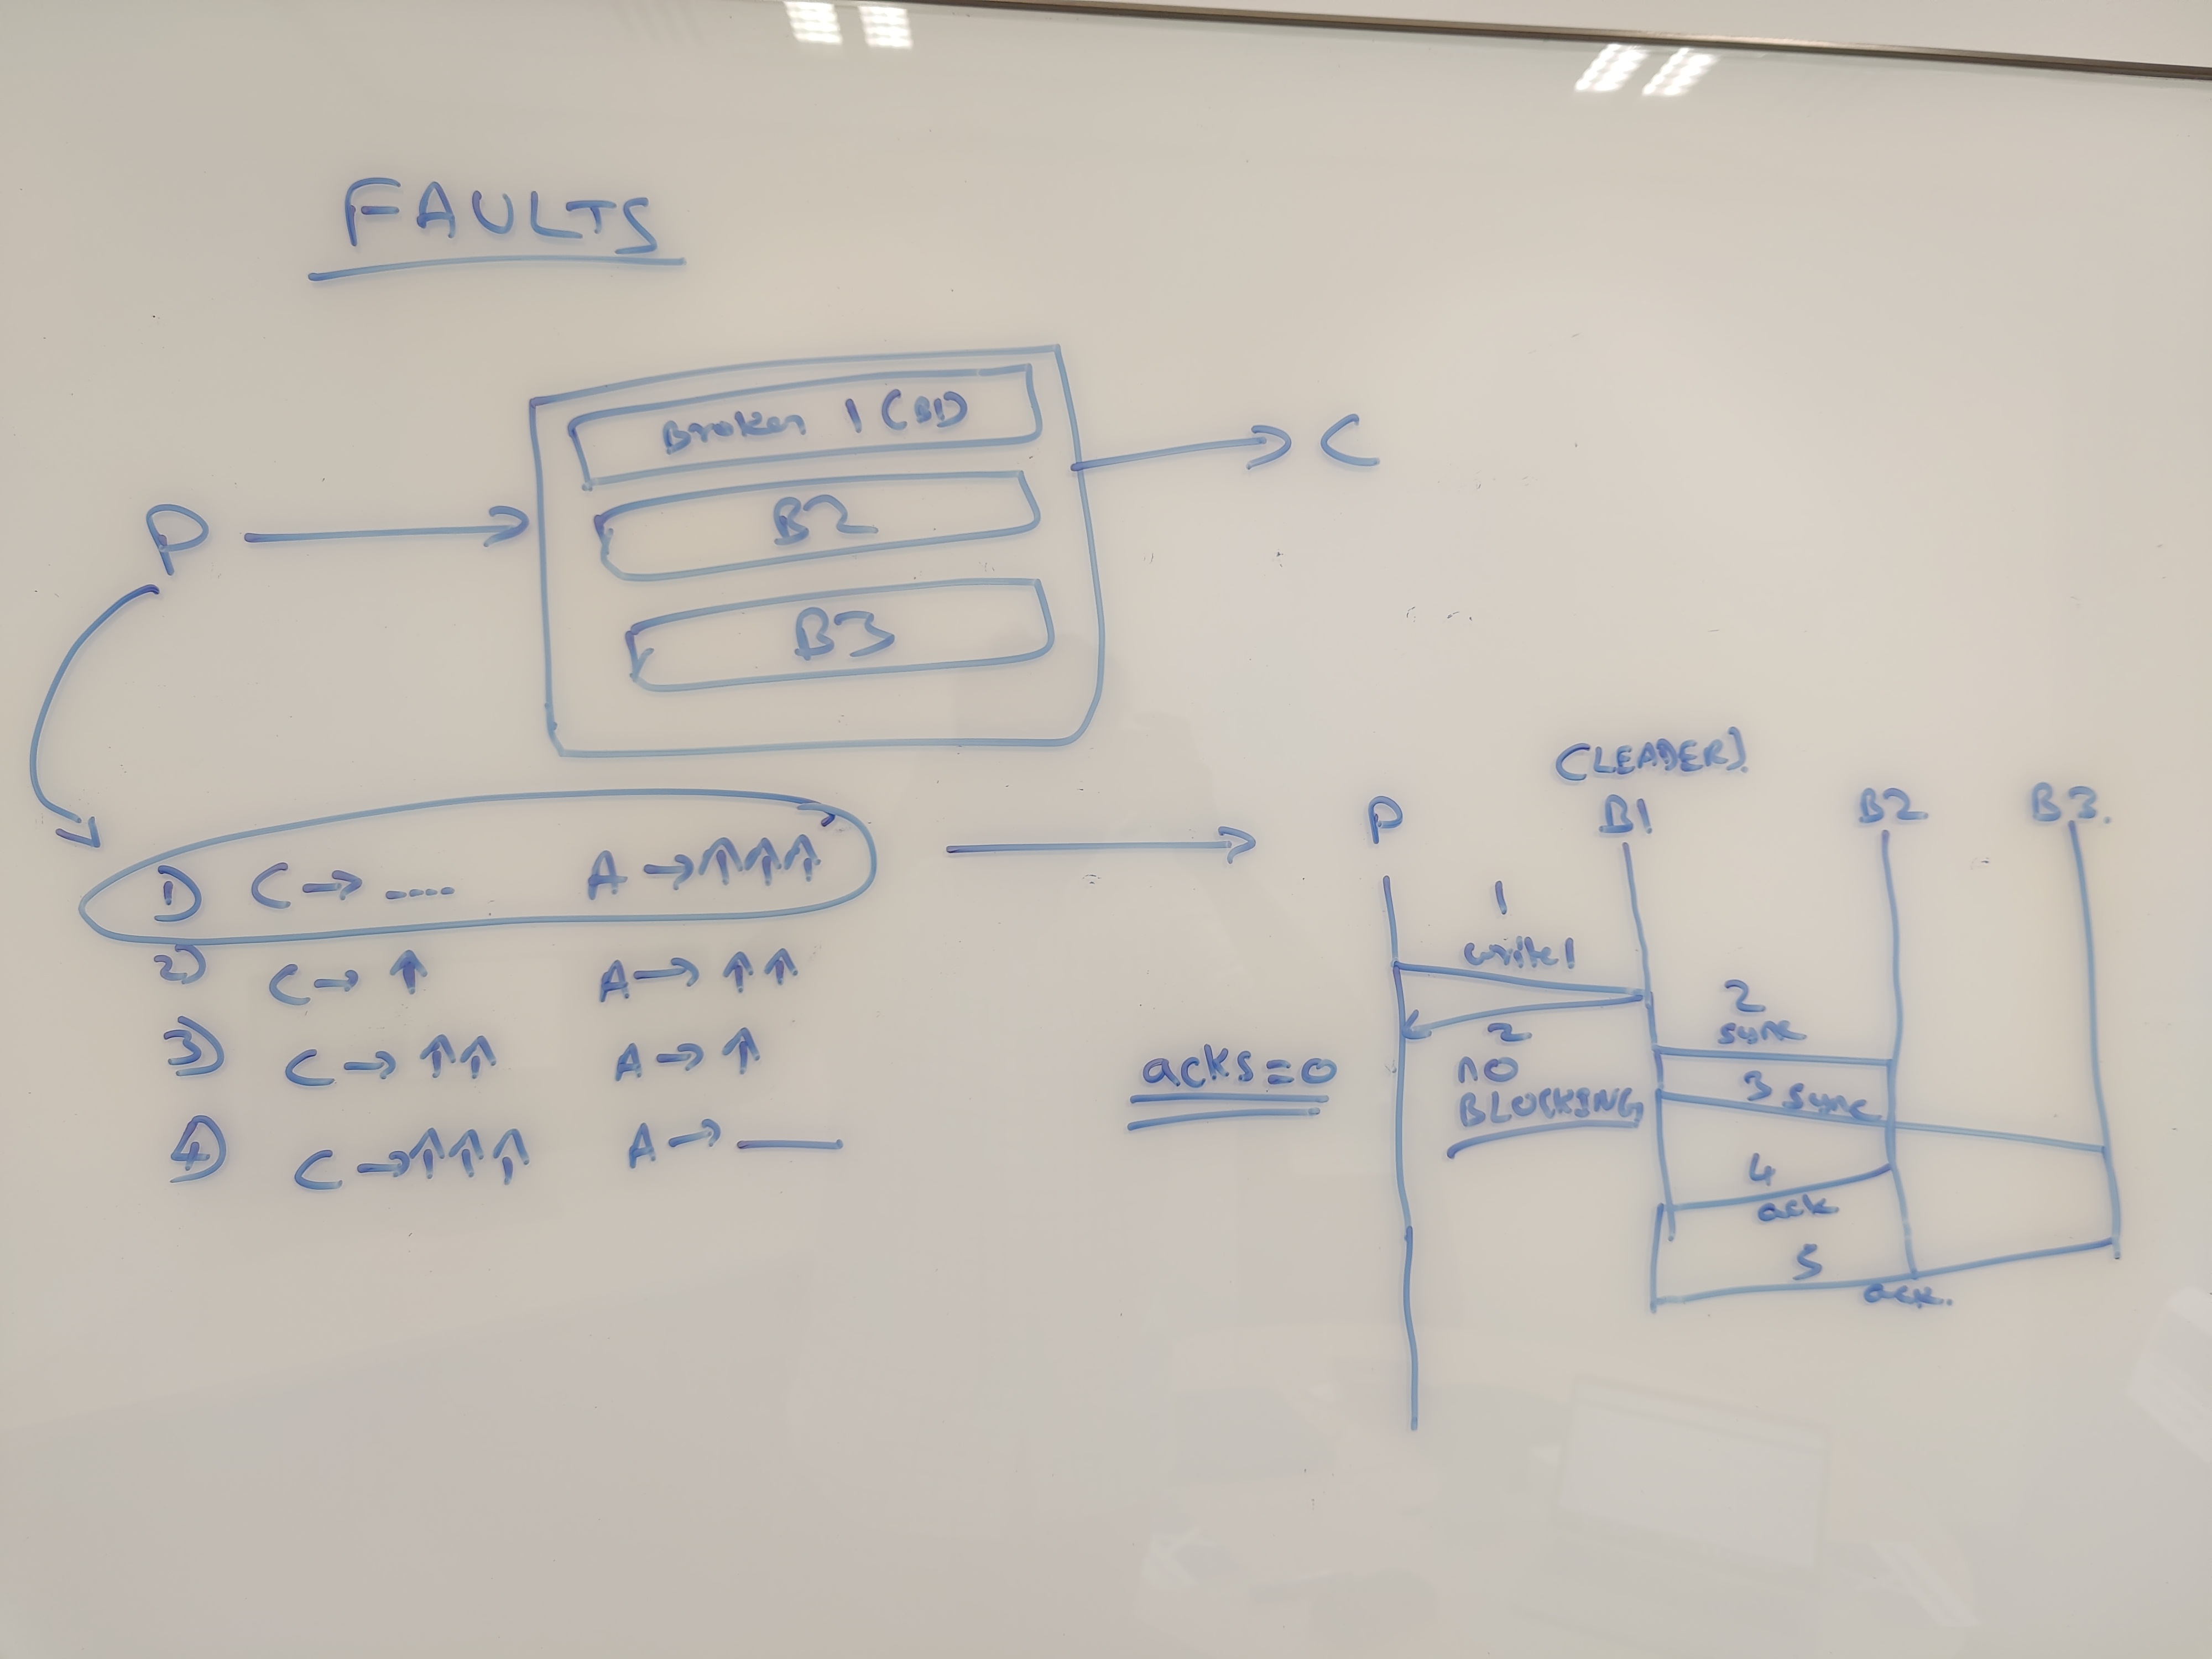 FAULTS
Broker 1 (B1)
B2
B3
P
C
1) C → .... A → ↑↑↑
2) C → ↑ A → ↑↑
3) C → ↑↑ A → ↑
4) C → ↑↑↑ A → —
(LEADER)
P B1 B2 B3.
1
write1
2
NO
BLOCKING
acks=0
2
sync
3 sync
4
ack
5
ack.